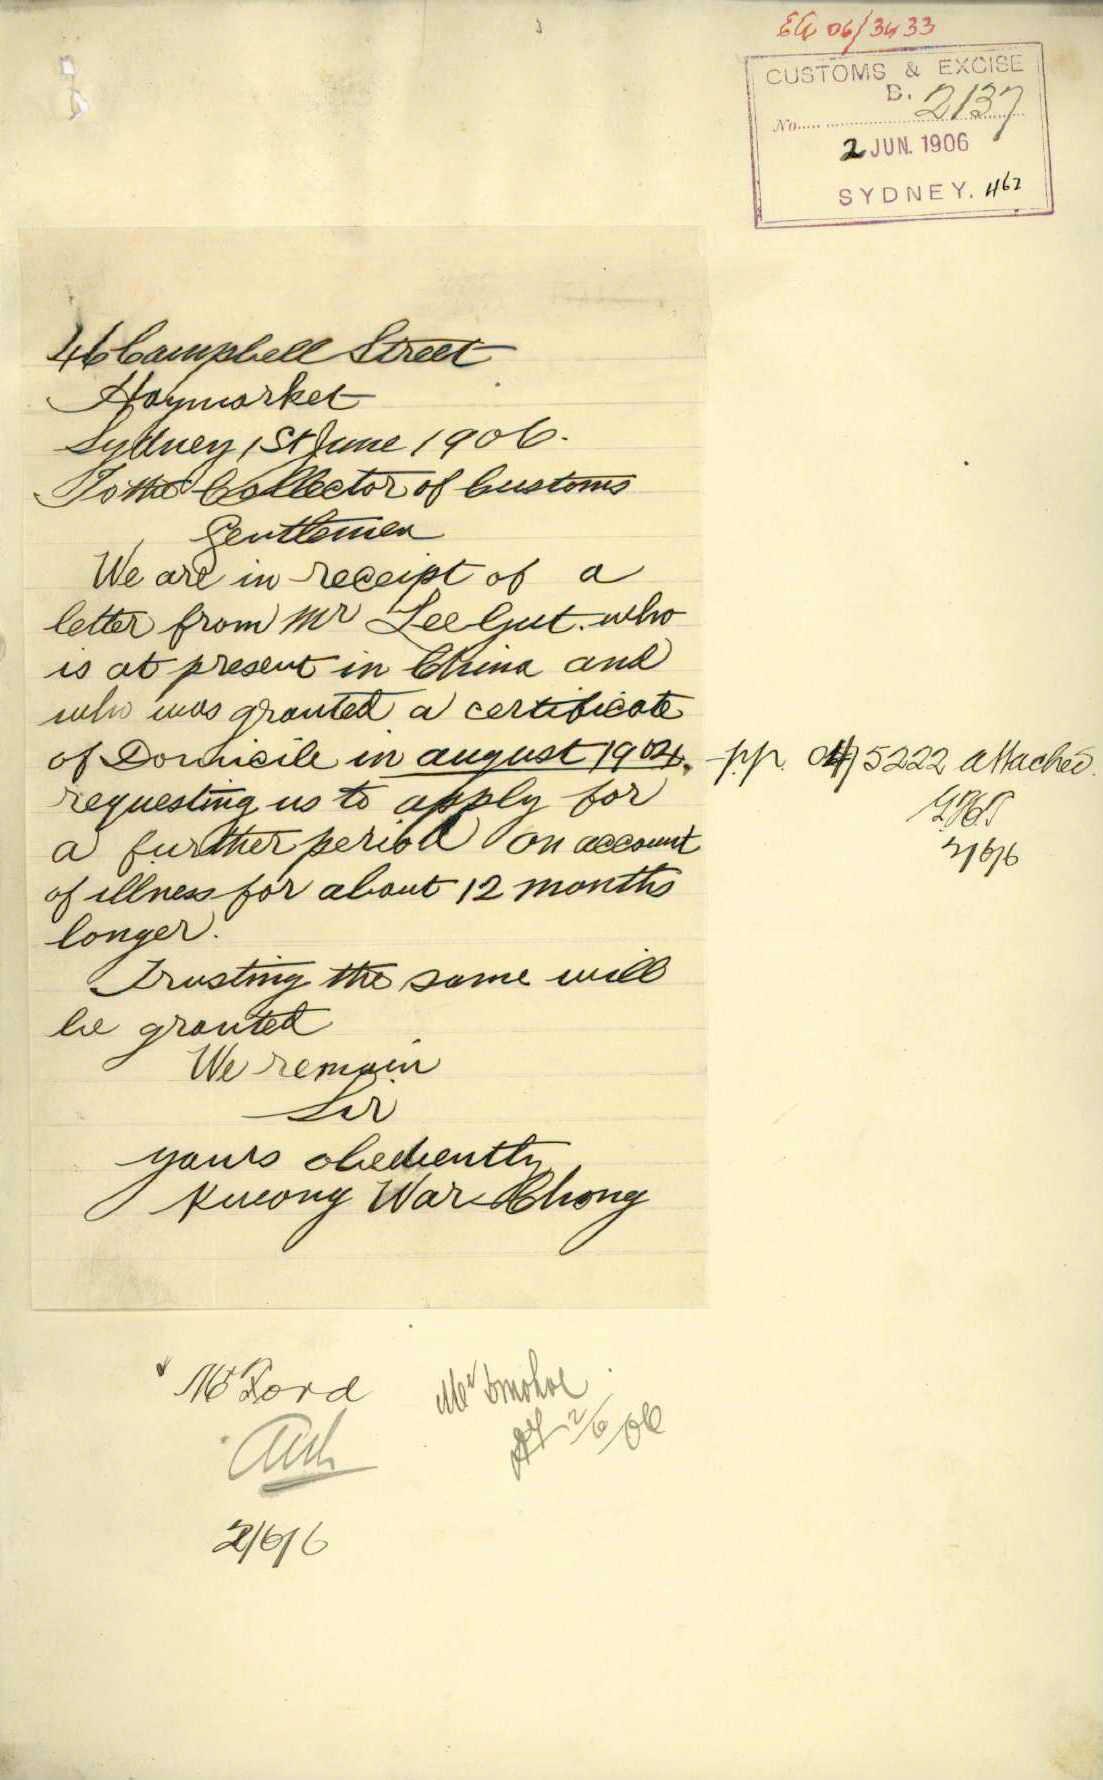 06/3433
CUSTOMS & EXCISE
B. 2137
No.
2 JUN. 1906
SYDNEY. 462
46 Campbell Street
Haymarket
Sydney 1st June 1906.
To the Collector of Customs
Gentlemen
We are in receipt of a
letter from Mr Lee Gut. who
is at present in China and
who was granted a certificate
of Domicile in august 1904.
pp. 04/5222 attached.
2/6/6
requesting us to apply for
a further period on account
of illness for about 12 months
longer.
Trusting the same will
be granted
We remain
Sir
yours obediently
Kwong War Chong
Mr Ford
2/6/6
Mr Donohoe
2/6/06